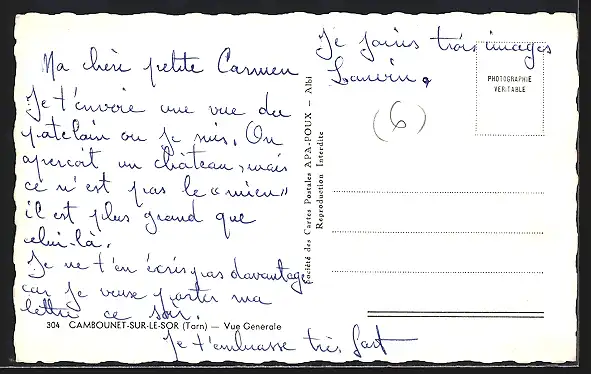 Ma chère petite Carmen
Je t'envoie une vue du
patelain ou je suis. On
aperçoit un château, mais
ce n'est pas le "mien"
il est plus grand que
celui-là.
Je ne t'en écris pas davantage
car je veux porter ma
lettre ce soir.
304 CAMBOUNET-SUR-LE-SOR (Tarn) — Vue Generale
Je t'embrasse très fort
Je joins trois images
(6)
PHOTOGRAPHIE
VERITABLE
Société des Cartes Postales APA-POUX — Albi
Reproduction Interdite